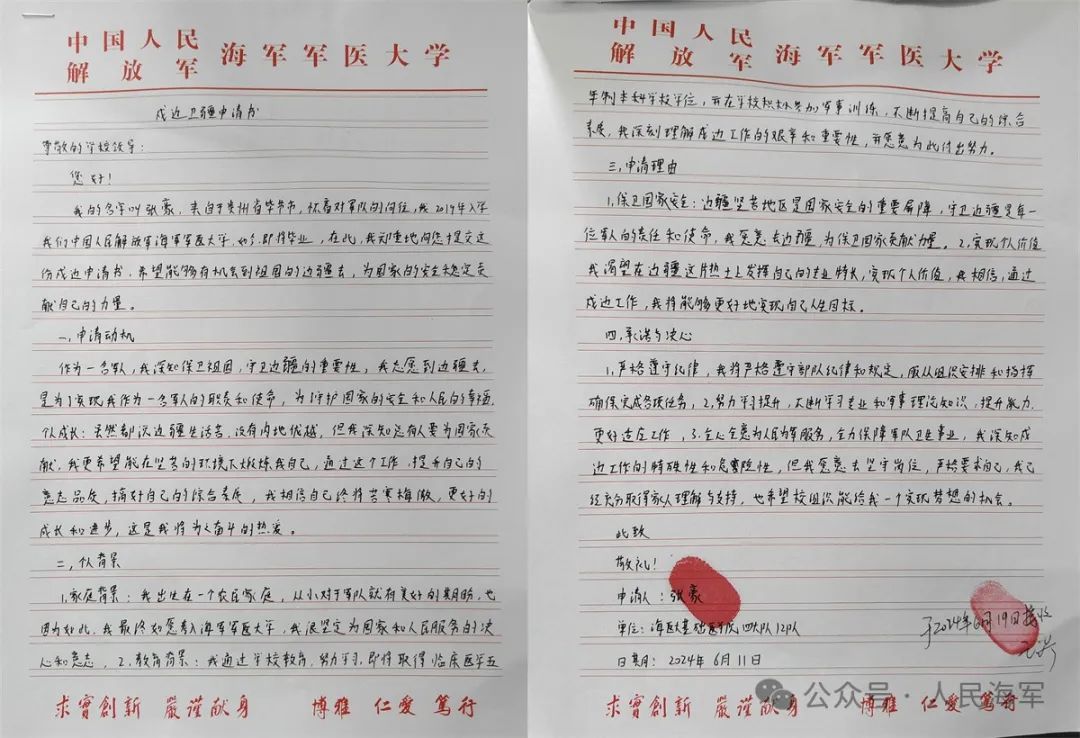 中国人民
解放军
海军军医大学
戍边卫疆申请书
尊敬的学校领导：
您好！
我的名字叫张豪，来自于贵州省毕节市，怀着对军队的向往，我2019年入学
我们中国人民解放军海军军医大学，如今即将毕业，在此，我郑重地向您提交这
份戍边申请书，希望能够有机会到祖国的边疆去，为国家的安全稳定贡
献自己的力量。
一、申请动机
作为一名军人，我深知保卫祖国，守卫边疆的重要性，我志愿到边疆去，
是为了实现我作为一名军人的职责和使命，为了守护国家的安全和人民的幸福。
个人成长：虽然都说边疆生活苦，没有内地优越，但我深知总有人要为国家贡
献，我更希望能在坚苦的环境下煅炼我自己，通过这个工作，提升自己的
意志品质，搞好自己的综合素质，我相信自己终将苦寒梅傲，更好的
成长和进步，这是我将为之奋斗的热爱。
二、个人背景
1.家庭背景：我出生在一个农民家庭，从小对于军队就有美好的期盼，也
因为如此，我最终如愿考入海军军医大学，我很坚定为国家和人民服务的决
心和意志，2、教育背景：我通过学校教育，努力学习，即将取得临床医学五
求實創新 嚴謹献身 博雅 仁愛 篤行
中国人民
解放军
海军军医大学
年制本科学校学位，并在学校积极参加军事训练，不断提高自己的综合
素质，我深刻理解戍边工作的艰辛和重要性，并愿意为此付出努力。
三、申请理由
1.保卫国家安全：边疆坚苦地区是国家安全的重要屏障，守卫边疆是每一
位军人的责任和使命，我愿意去边疆，为保卫国家贡献力量。2.实现个人价值
我渴望在边疆这片热土上发挥自己的专业特长，实现个人价值，我相信，通过
戍边工作，我将能够更好地实现自己人生目标。
四、承诺与决心
1.严格遵守纪律，我将严格遵守部队纪律和规定，服从组织安排和指挥
确保完成各项任务，2.努力学习提升，不断学习专业和军事理论知识，提升能力，
更好适应工作，3.全心全意为人民为军服务，全力保障军队卫生事业，我深知戍
边工作的特殊性和危险性，但我愿意去坚守岗位，严格要求自己，我已
经充分取得家人理解与支持，也希望校组织能给我一个实现梦想的机会。
此致
敬礼！
申请人：张豪
单位：海医大基础医学院四大队12队
于2024年6月19日接收
日期：2024年6月11日
求實創新 嚴謹献身 博雅 仁愛 篤行
公众号·人民海军